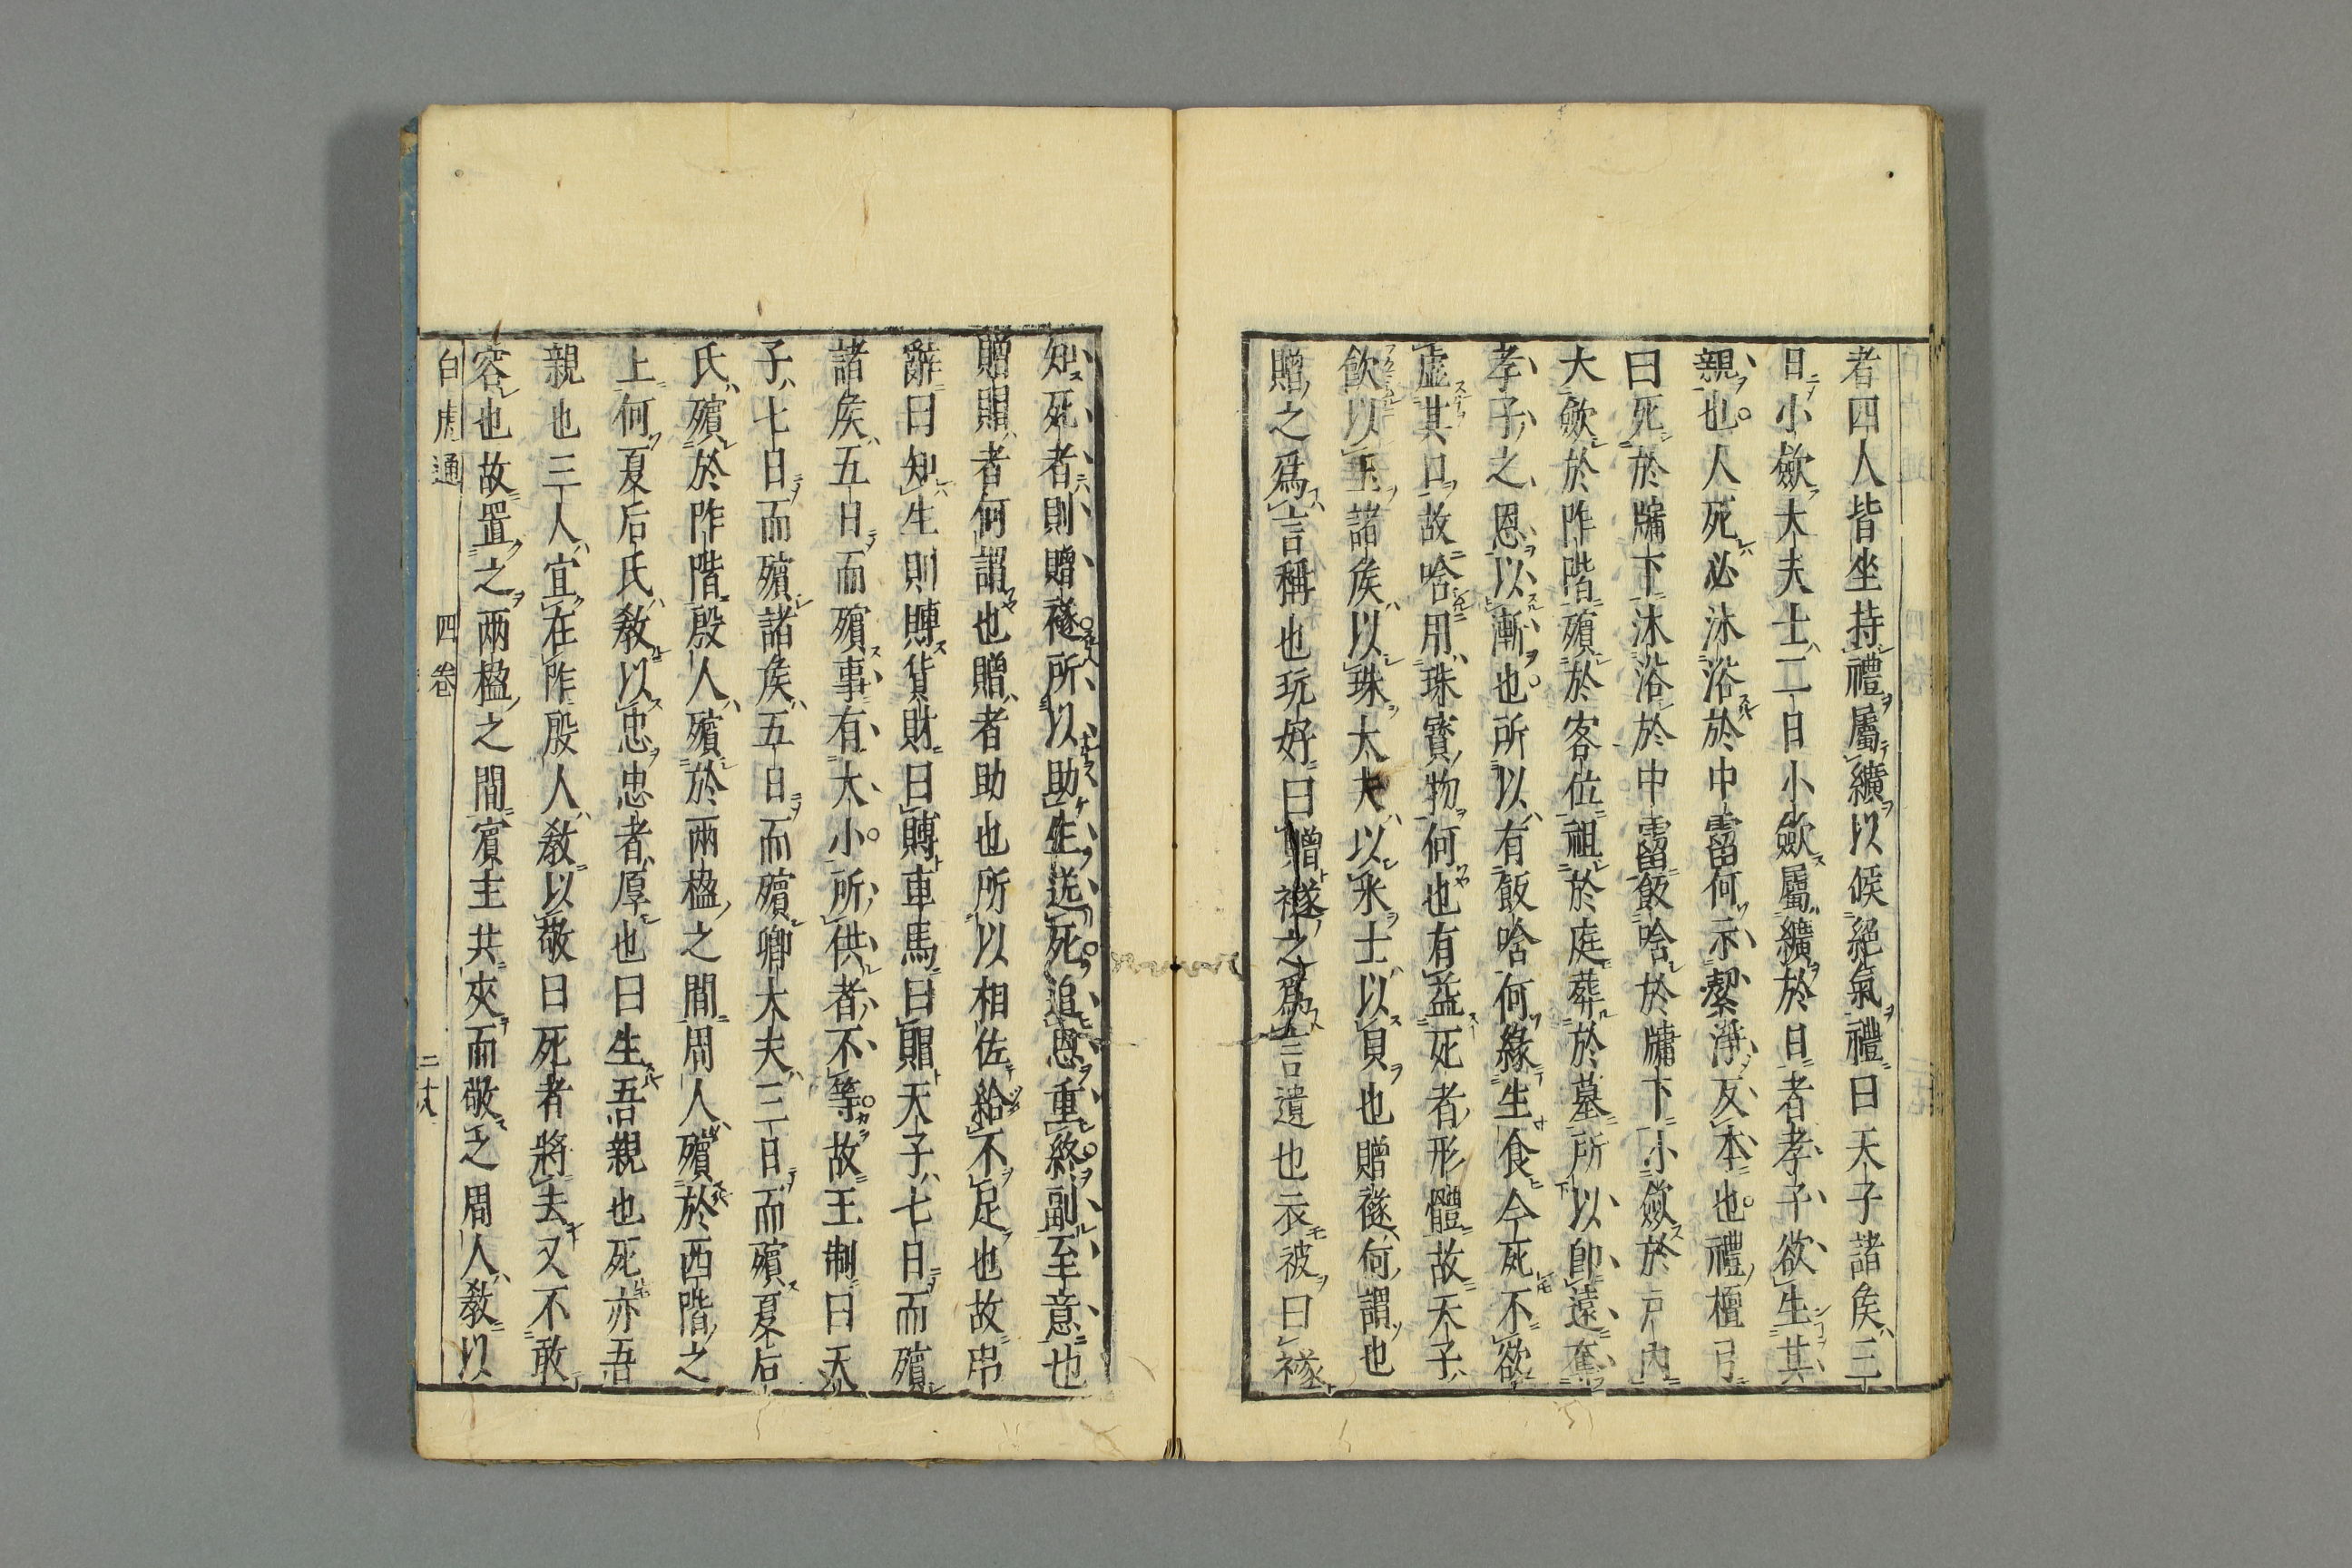 者四人皆坐持禮屬纊以候絕氣禮曰天子諸矦三
日小歛大夫士二日小歛屬纊於日者孝子欲生其
親也人死必沐浴於中霤何示潔淨反本也禮檀弓
曰死於牖下沐浴於中霤飯唅於牖下小歛於戶內
大歛於阼階殯於客位祖於庭葬於墓所以卽遠奪
孝子之恩以漸也所以有飯唅何緣生食今死不欲
虛其口故唅用珠寶物何也有益死者形體故天子
飲以玉諸矦以珠大夫以米士以貝也贈襚何謂也
贈之爲言稱也玩好曰贈襚之爲言遺也衣被曰襚
知死者則贈襚所以助生送死追恩重終副至意也
贈賵者何謂也贈者助也所以相佐給不足也故弔
辭曰知生則賻貨財曰賻車馬曰賵天子七日而殯
諸矦五日而殯事有大小所供者不等故王制曰天
子七日而殯諸矦五日而殯卿大夫三日而殯夏后
氏殯於阼階殷人殯於兩楹之間周人殯於西階之
上何夏后氏教以忠忠者厚也曰生吾親也死亦吾
親也三人宜在阼殷人教以敬曰死者將去又不敢
容也故置之兩楹之間賓主共夾而敬之周人教以
白虎通 四卷 二十八